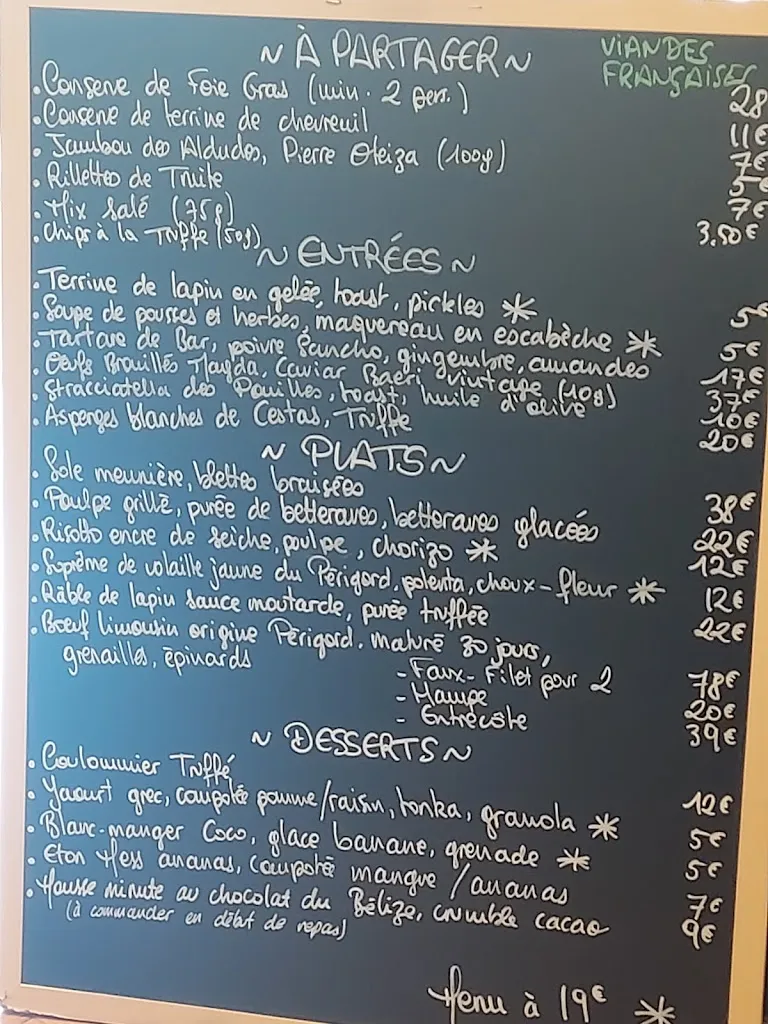 ~ À PARTAGER ~
VIANDES
FRANÇAISES
. Conserve de Foie Gras (min. 2 pers.) 28
. Conserve de terrine de chevreuil 11€
. Jambon des Aldudes, Pierre Oteiza (100g) 7€
. Rillettes de Truite 5€
. Mix Salé (75g) 7€
. Chips à la Truffe (50g) 3.50€
~ ENTRÉES ~
. Terrine de lapin en gelée, toast, pickles * 5€
. Soupe de pousses et herbes, maquereau en escabèche * 5€
. Tartare de Bar, poivre Sancho, gingembre, amandes 17€
. Oeufs Brouillés Magda, Caviar Baeri vintage (10g) 37€
. Stracciatella des Pouilles, toast, huile d'olive 10€
. Asperges blanches de Cestas, Truffe 20€
~ PLATS ~
. Sole meunière, blettes braisées 38€
. Poulpe grillé, purée de betteraves, betteraves glacées 22€
. Risotto encre de seiche, poulpe, chorizo * 12€
. Suprême de volaille jaune du Périgord, polenta, choux-fleur * 12€
. Râble de lapin sauce moutarde, purée truffée 22€
. Boeuf limousin origine Périgord, maturé 30 jours,
grenailles, épinards
- Faux-Filet pour 2 78€
- Hampe 20€
- Entrecôte 39€
~ DESSERTS ~
. Coulommier Truffé 12€
. Yaourt grec, compotée pomme/raisin, tonka, granola * 5€
. Blanc-manger Coco, glace banane, grenade * 5€
. Eton Mess ananas, compoté mangue / ananas 7€
. Mousse minute au chocolat du Bélize, crumble cacao 9€
(à commander en début de repas)
Menu à 19€ *